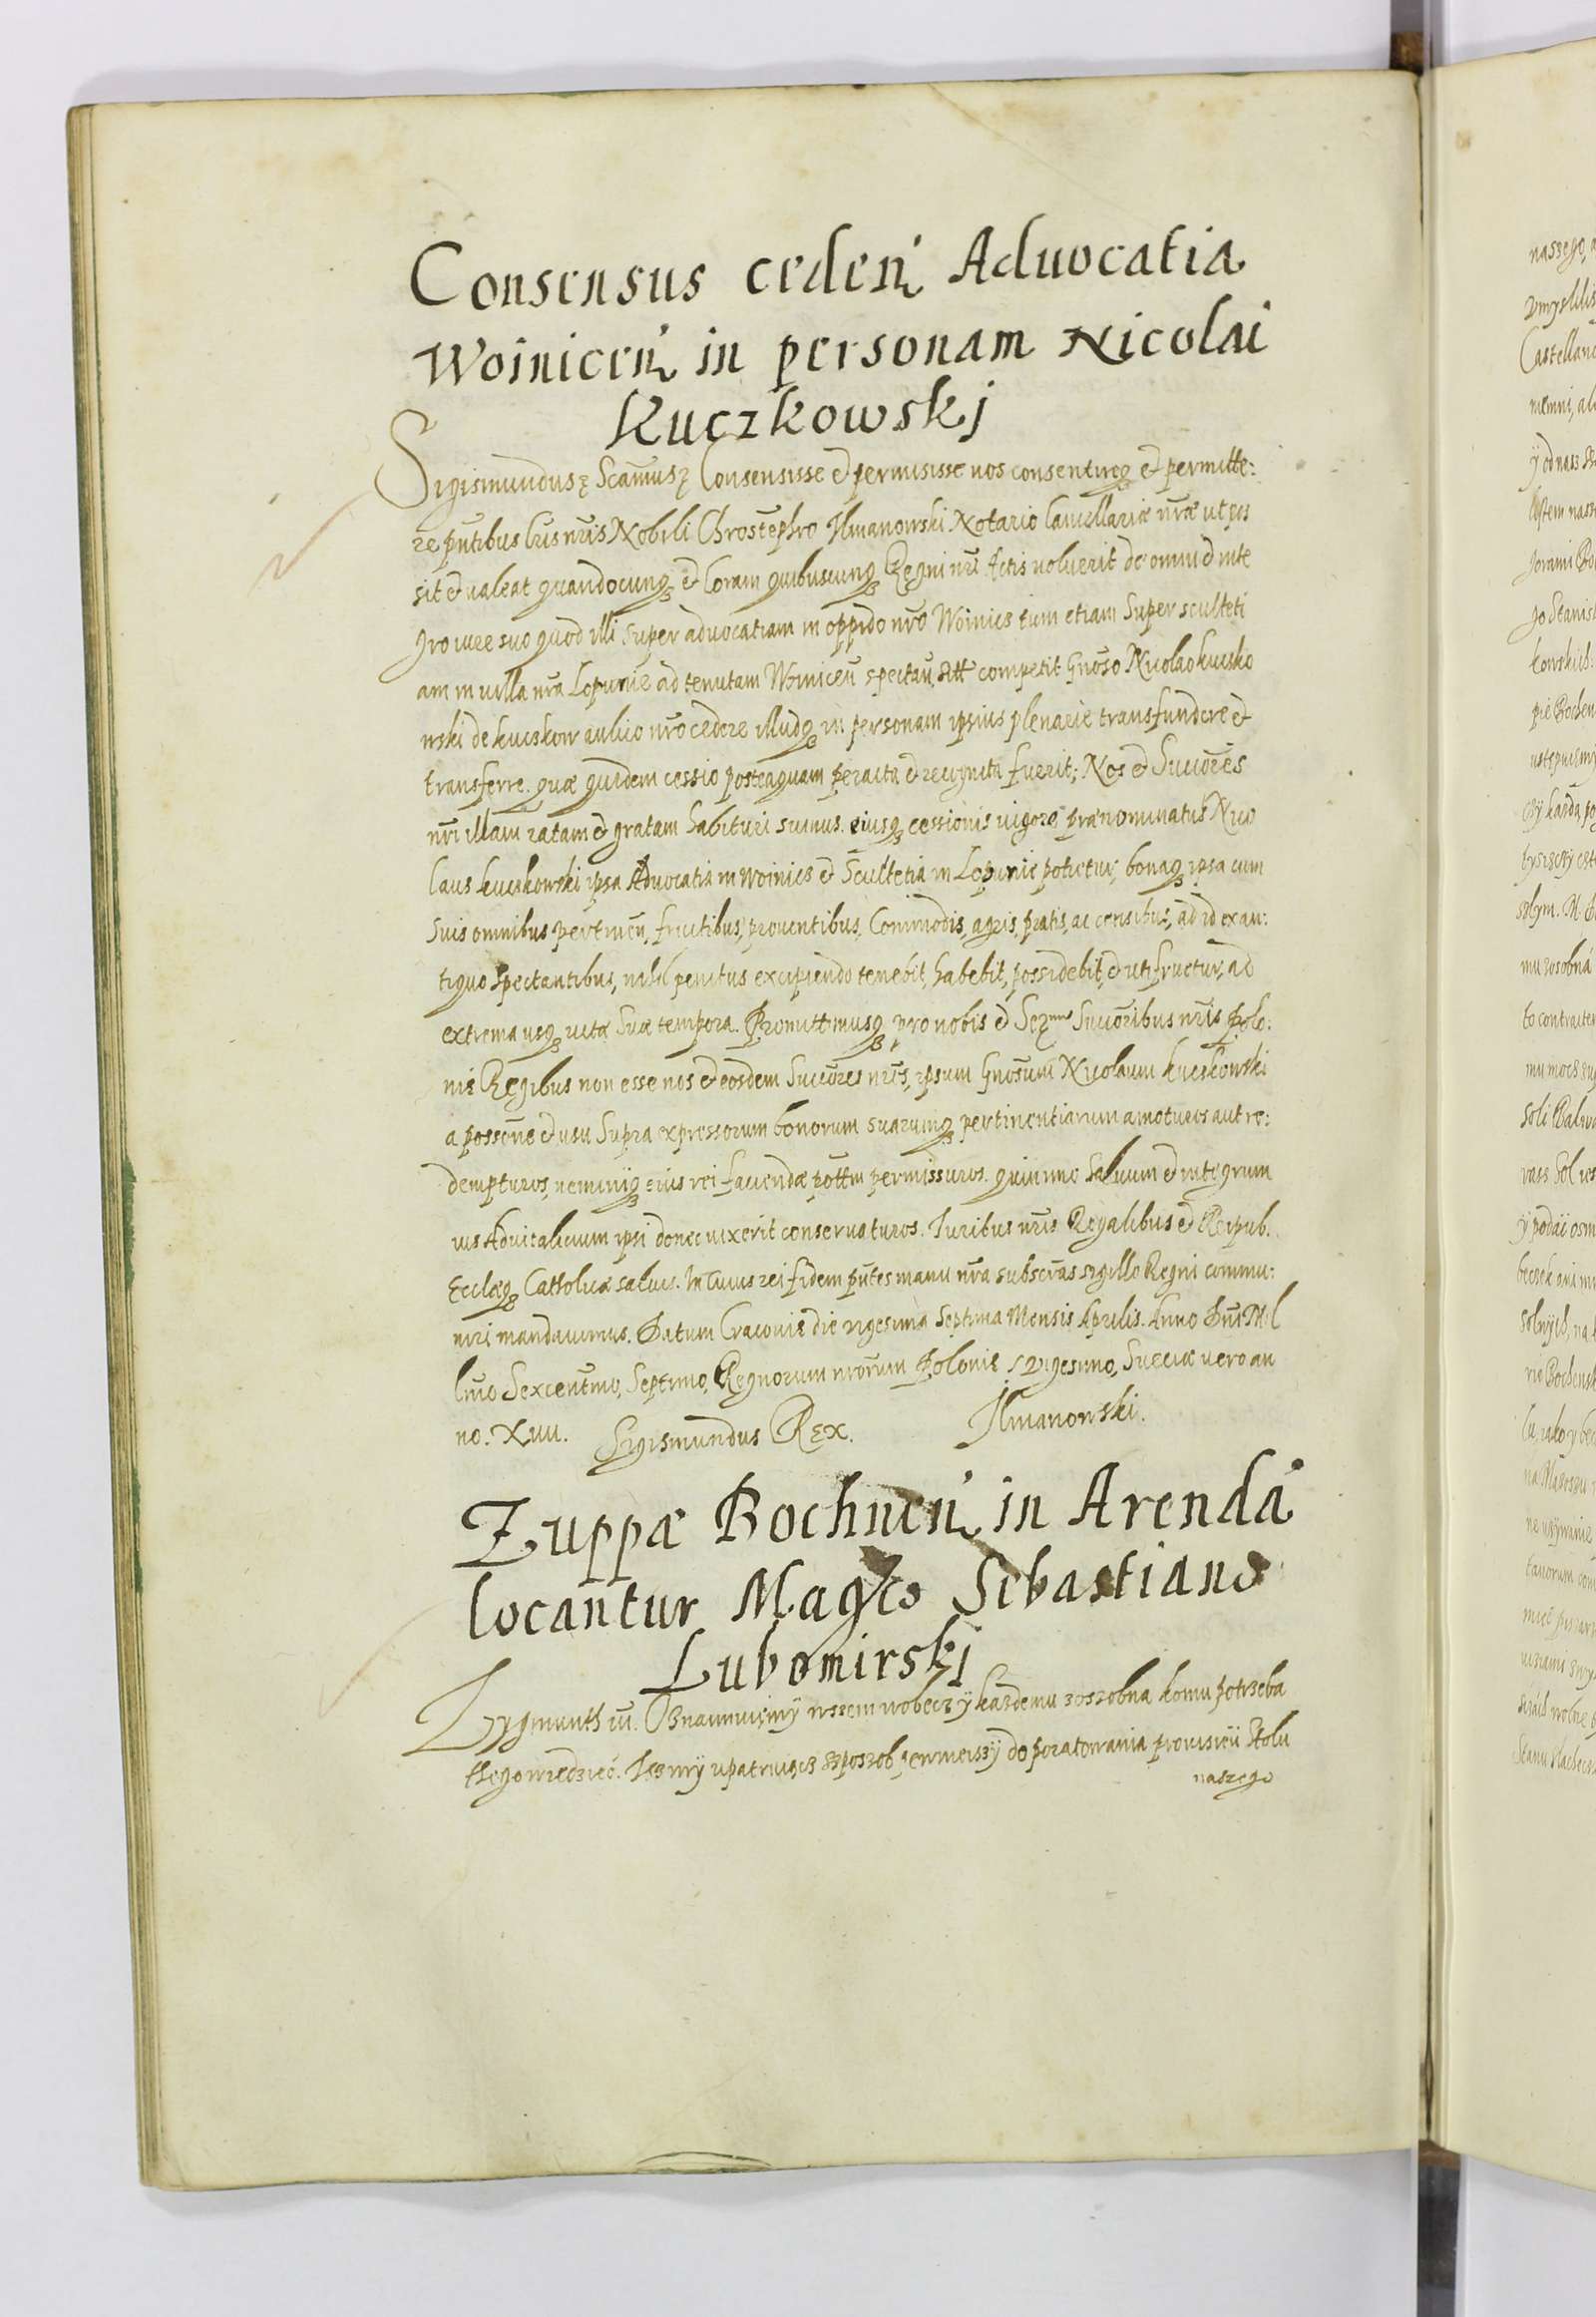 Consensus ceden̄ Aduocatia
Woinicen̄ in personam Nicolai
Kuczkowskj
Sigismundus ꝫ Scim̄us ꝫ Consensisse et permisisse nos consentireqꝫ et permitte:
re pn̄tibus Lr̄is nr̄is Nobili Chrostephro Ilmanowski Notario Cancellariæ nr̄æ ut pos
sit et ualeat quandocunqꝫ et Coram quibuscunqꝫ Regni nr̄i Actis uoluerit de omni et inte
gro iure suo quod illi super aduocatiam in oppido nr̄o Woinics tum etiam Super sculteti
am in uilla nr̄a Lopunie ad tenutam Woinicen̄ spectan̄ competit Gn̄oso Nicolao kucsko
wski de kucskow aulico nr̄o cedere illudqꝫ in personam ipsius plenarie transfundere et
transferre. quæ quidem cessio posteaquam peracta et recognita fuerit; Nos et Succōres
nr̄i illam ratam et gratam habituri sumus. eiusqꝫ cessionis uigore prænominatus Nico
laus kucskowski ipsa Aduocatia in woinics et Scultetia in Lopunie potietur, bonaqꝫ ipsa cum
Suis omnibus pertinen̄, fructibus, prouentibus, Commodis, agris, pratis, ac censibus, ad id ex an:
tiquo Spectantibus, nihil penitus excipiendo tenebit, habebit, possidebit, et utifruetur, ad
extrema usqꝫ uitæ Suæ tempora. Promittimusqꝫ pro nobis et Ser̄mis Succōribus nr̄is Polo:
niæ Regibus non esse nos et eosdem Succōres nr̄os, ipsum Gn̄osum Nicolaum kucskowski
a possēne et usu Supra expressorum bonorum suarumqꝫ pertinentiarum amoturos aut re:
dempturos, neminiqꝫ eius rei faciendæ pōttm permissuros. quin imo Saluum et integrum
ius Aduitalicium ipsi donec uixerit conseruaturos. Iuribus nr̄is Regalibus et Reipub.
Ecclæqꝫ Catholicæ saluis. In Cuius rei fidem pn̄tes manu nr̄a subscr̄as sigillo Regni commu:
niri mandauimus. Datum Cracouiæ die uigesima Septima Mensis Aprilis. Anno Dn̄i Mil
lm̄o Sexcentm̄o, Septimo, Regnorum nrōrum Poloniæ Vigesimo, Sueciæ uero an
no. Xiiii. Sigismundus Rex. Ilmanowski.
Zuppæ Bochnen̄ in Arendā
locantur Mag̃co Sebastiano
Lubomirskj
Zygmunth iii. Oznaimuięmÿ wssem wobecz ÿ każdemu zoszobna komu potrzeba
thego wiedzieć. Iesmÿ upatruiącz szposzob pewnieiszÿ do poratowania prowisieÿ Stolu
naszego